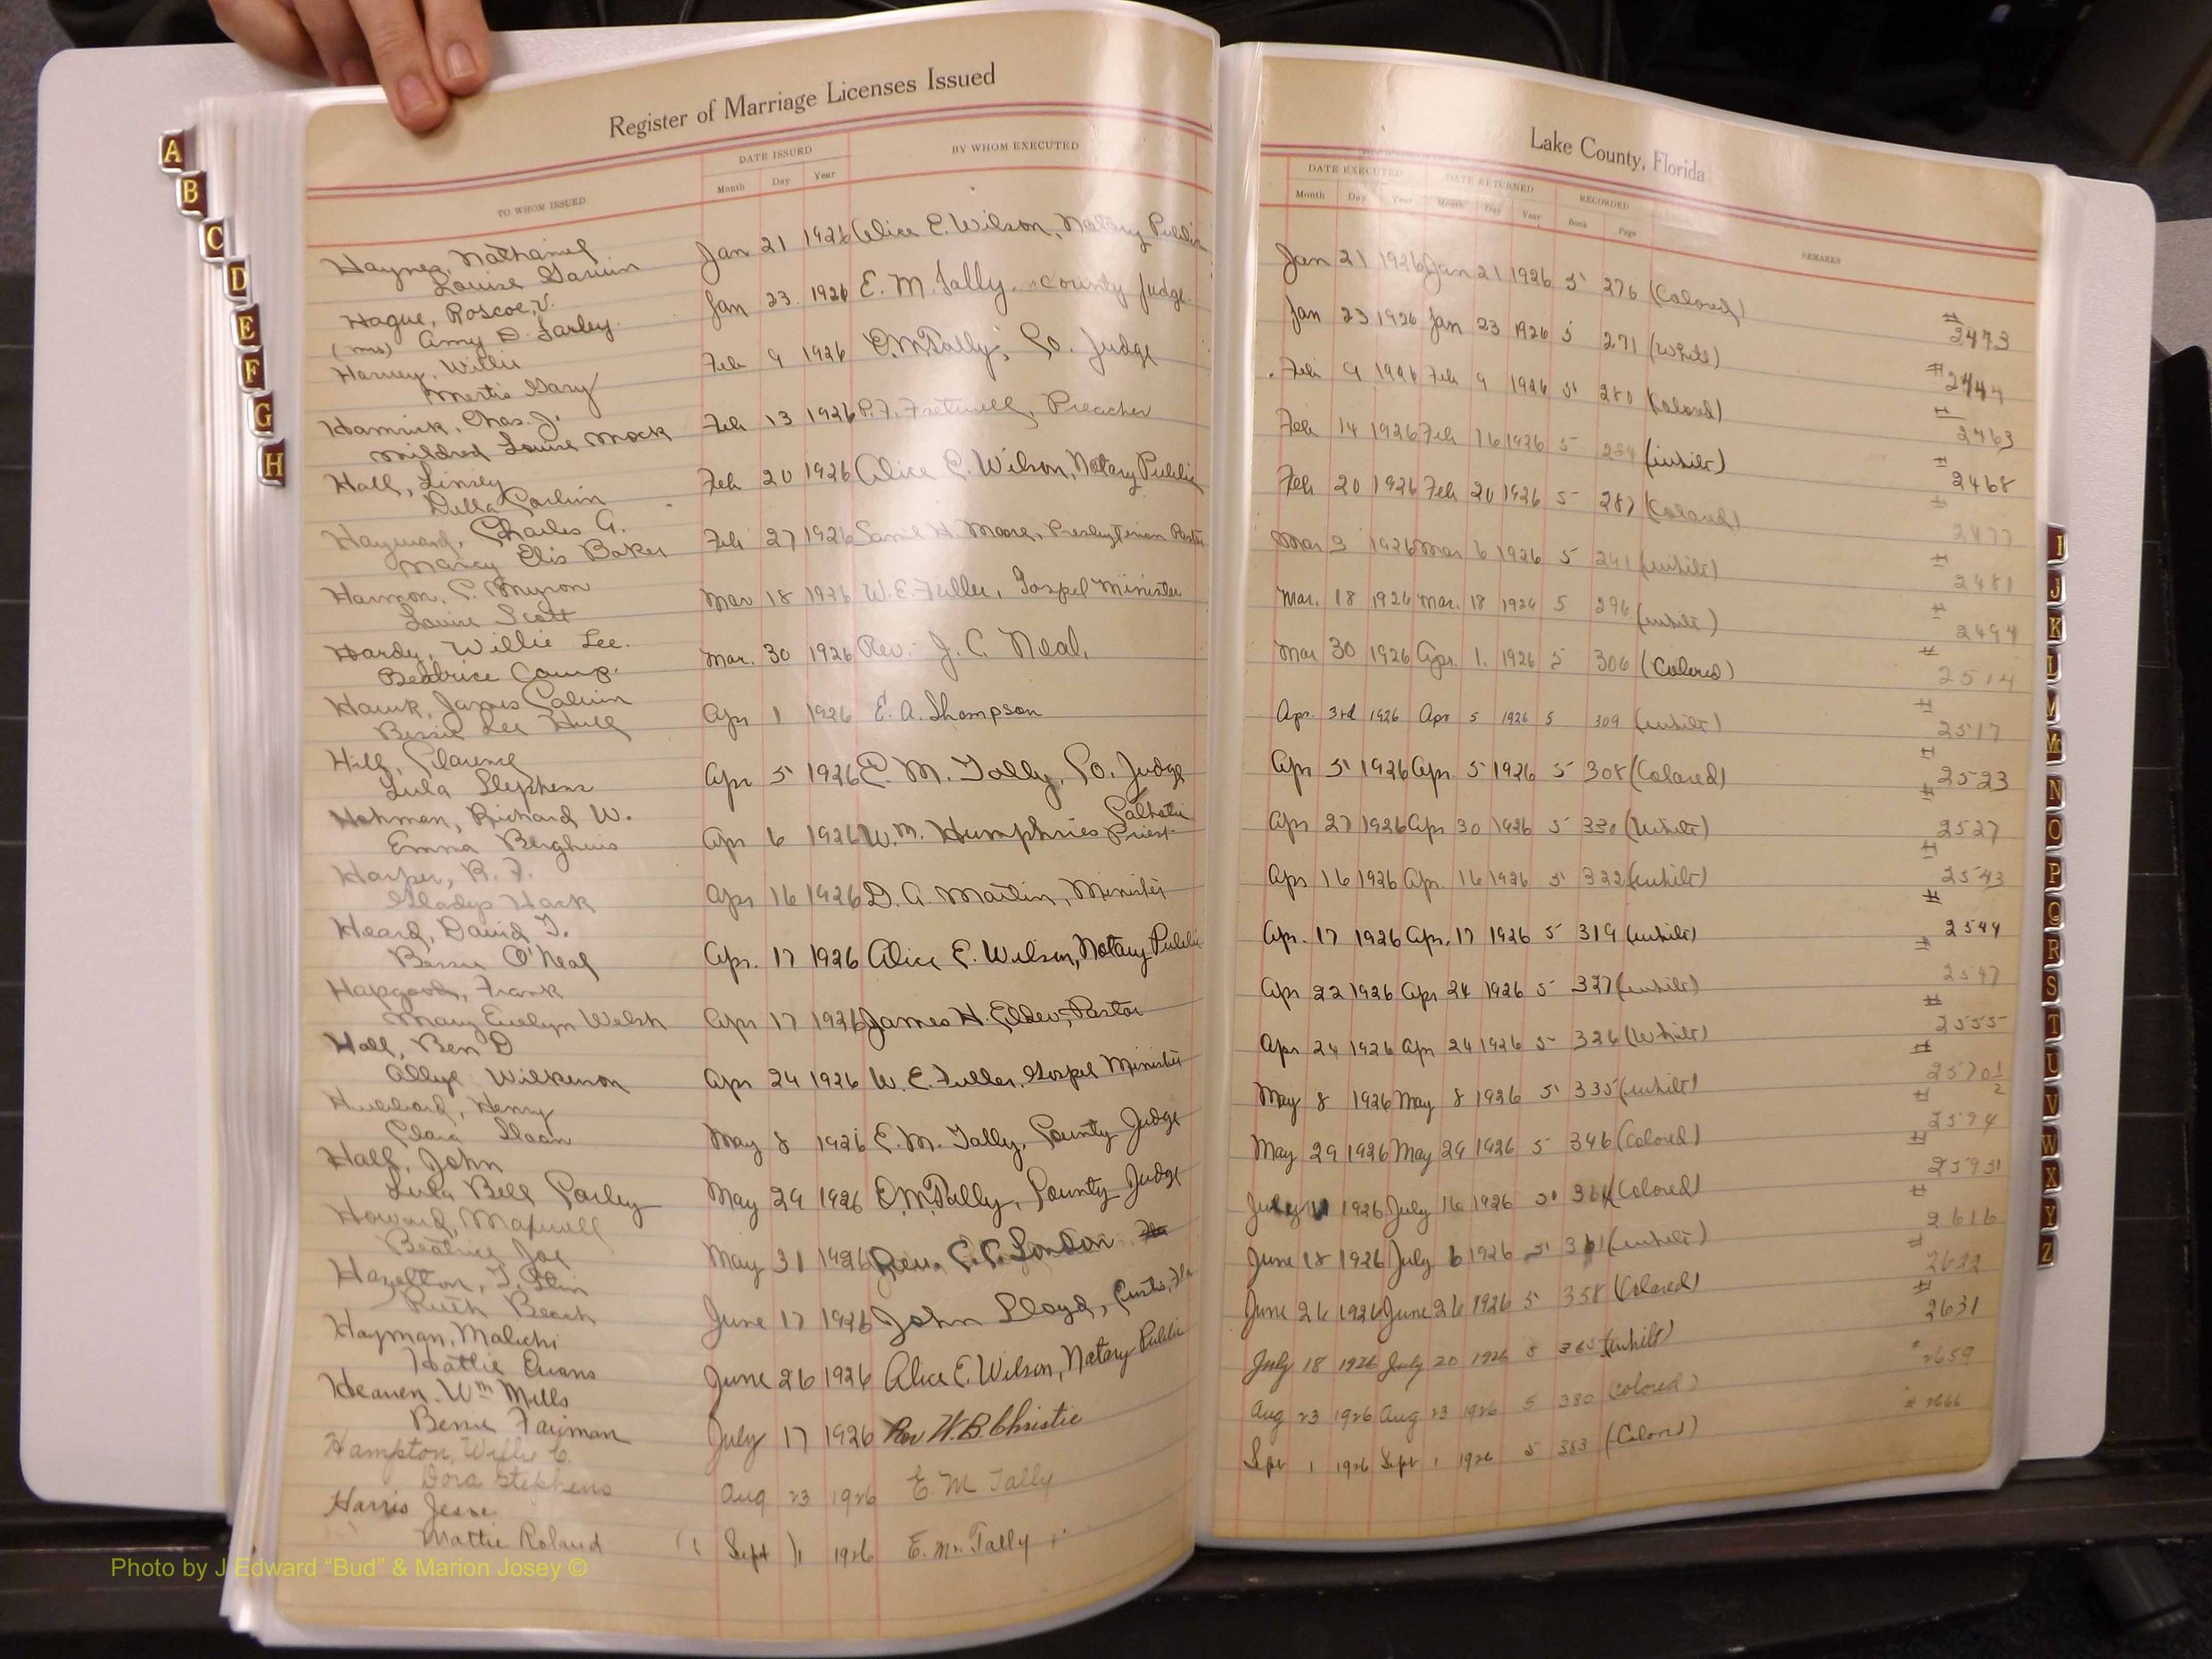 Register of Marriage Licenses Issued
TO WHOM ISSUED
DATE ISSUED
Month Day Year
BY WHOM EXECUTED
Haynes, Nathaniel Jan 21 1926 Alice E. Wilson, Notary Public
Louise
Hague, Roscoe V. Jan 23. 1926 E. M. Tally County Judge
(mrs) Amy D. Farley.
Harvey, Willie Feb 9 1926 E M Tally, Co. Judge
Mertis Gary
Hamrick, Chas. J. Feb 13 1926 P. F. Fretwell, Preacher
Mildred Louise Mock
Hall, Linsey Feb 20 1926 Alice E. Wilson, Notary Public
Della
Hayward, Charles A. Feb 27 1926 H. Moore, Presbyterian Pastor
Nancy Elis Baker
Harmon, C. Myron Mar 18 1926 W. E. Fuller, Gospel Minister
Louise Scott
Hardy, Willie Lee. Mar. 30 1926 Rev. J. C. Neal,
Beatrice Camp.
Hawk, James Calvin Apr 1 1926 E. A. Thompson
Bessie Lee Hull
Hill, Clarence Apr 5 1926 E. M. Tally, Co. Judge
Lula Stephens
Hohman, Richard W. Apr 6 1926 Wm. Humphries Catholic Priest
Emma Berghuis
Harper, R. F. Apr 16 1926 D. A. Martin, Minister
Gladys Hack
Heard, David T. Apr. 17 1926 Alice E. Wilson, Notary Public
Bessie O'Neal
Hapgood, Frank Apr 17 1926 James H. Elder, Pastor
Mary Evelyn Welsh
Hall, Ben D Apr 24 1926 W. E. Fuller, Gospel Minister
Allye Wilkinson
Hubbard, Henry May 8 1926 E. M. Tally, County Judge
Clara Sloan
Hall, John May 29 1926 E. M. Tally, County Judge
Lula Bell
Howard, Maxwell May 31 1926 Rev. London
Beatrice Joe
Hazelton, T. June 17 1926 John Lloyd, Eustis, Fla
Ruth Beach
Hayman, Malichi June 26 1926 Alice E. Wilson, Notary Public
Hattie Evans
Heaven. Wm Mills July 17 1926 Rev W. B. Christie
Bessie Faiman
Hampton, Willie C. Aug 23 1926 E M Tally
Dora Stephens
Harris Jesse Sept 1 1926 E. M. Tally
Mattie Roland
Lake County, Florida
DATE EXECUTED DATE RETURNED RECORDED
Month Day Year Month Day Year Book Page
REMARKS
Jan 21 1926 Jan 21 1926 5 276 (Colored) # 2473
Jan 23 1926 Jan 23 1926 5 271 (White) # 2444
Feb 9 1926 Feb 9 1926 5 280 (Colored) # 2463
Feb 14 1926 Feb 16 1926 5 284 (white) # 2468
Feb 20 1926 Feb 20 1926 5 287 (Colored) # 2477
Mar 3 1926 Mar 6 1926 5 291 (white) # 2481
Mar. 18 1926 Mar. 18 1926 5 296 (white) # 2494
Mar 30 1926 Apr. 1. 1926 5 306 (Colored) # 2514
Apr. 3rd 1926 Apr 5 1926 5 309 (white) # 2517
Apr 5 1926 Apr. 5 1926 5 308 (Colored) # 2523
Apr 27 1926 Apr 30 1926 5 330 (White) # 2527
Apr 16 1926 Apr. 16 1926 5 322 (white) # 2543
Apr. 17 1926 Apr. 17 1926 5 319 (white) # 2544
Apr 22 1926 Apr 24 1926 5 327 (white) # 2547
Apr 24 1926 Apr 24 1926 5 326 (White) # 2555
May 8 1926 May 8 1926 5 335 (white) # 2570 1/2
May 29 1926 May 29 1926 5 346 (Colored) # 2594
July 11 1926 July 16 1926 5 364 (Colored) # 2595
June 18 1926 July 6 1926 5 361 (white) # 2616
June 26 1926 June 26 1926 5 358 (Colored) # 2622
July 18 1926 July 20 1926 5 365 (white) # 2631
Aug 23 1926 Aug 23 1926 5 380 (Colored) # 2659
Sept 1 1926 Sept 1 1926 5 383 (Colored) # 2666
A
B
C
D
E
F
G
H
I
J
K
L
M
Mc
N
O
P
Q
R
S
T
U
V
W
X
Y
Z
Photo by J Edward “Bud” & Marion Josey ©